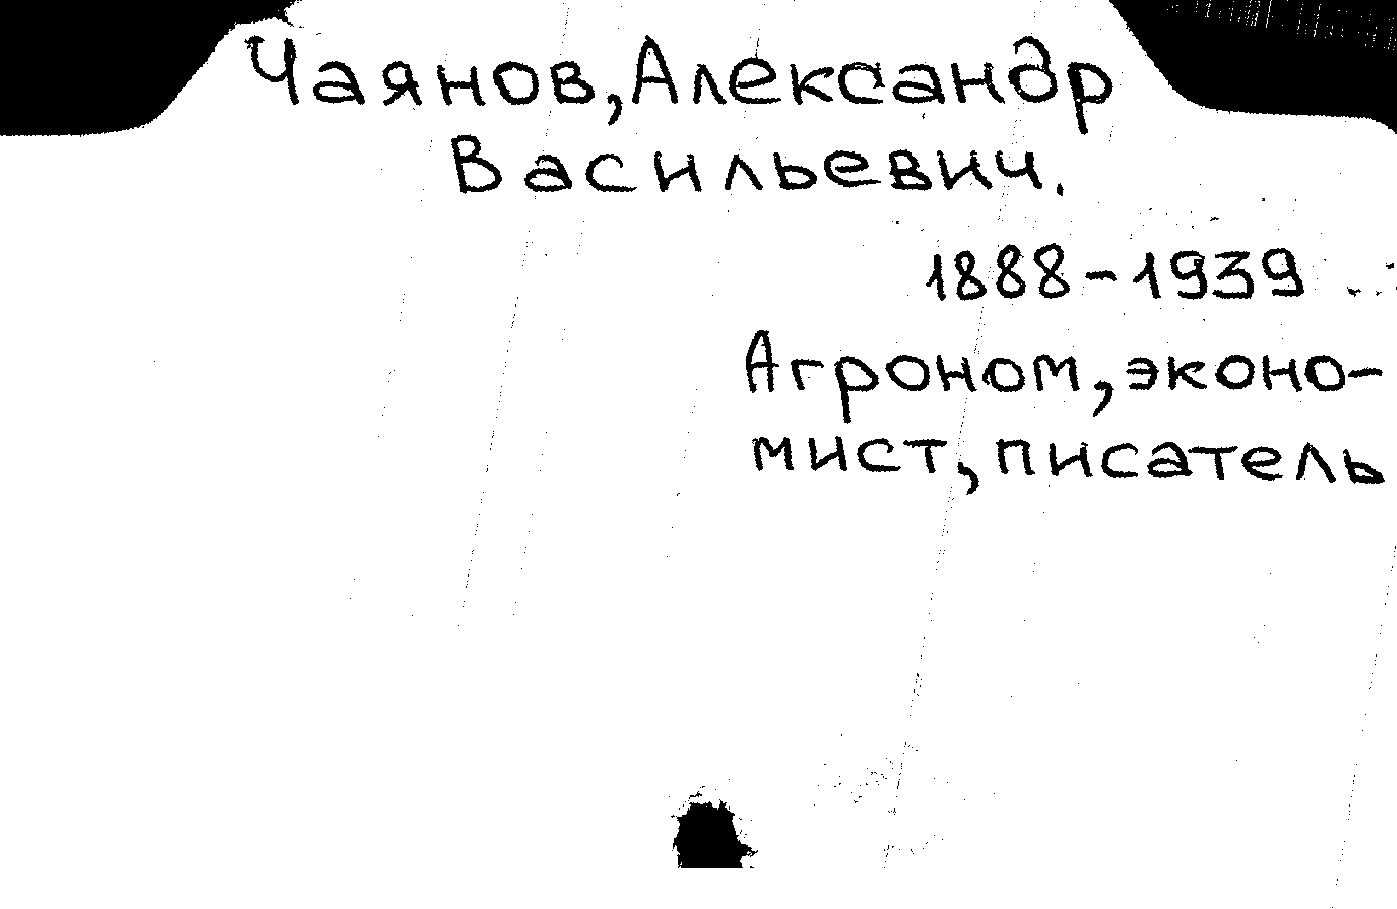 Чаянов, Александр
Васильевич.
1888-1939
Агроном, эконо-
мист, писатель